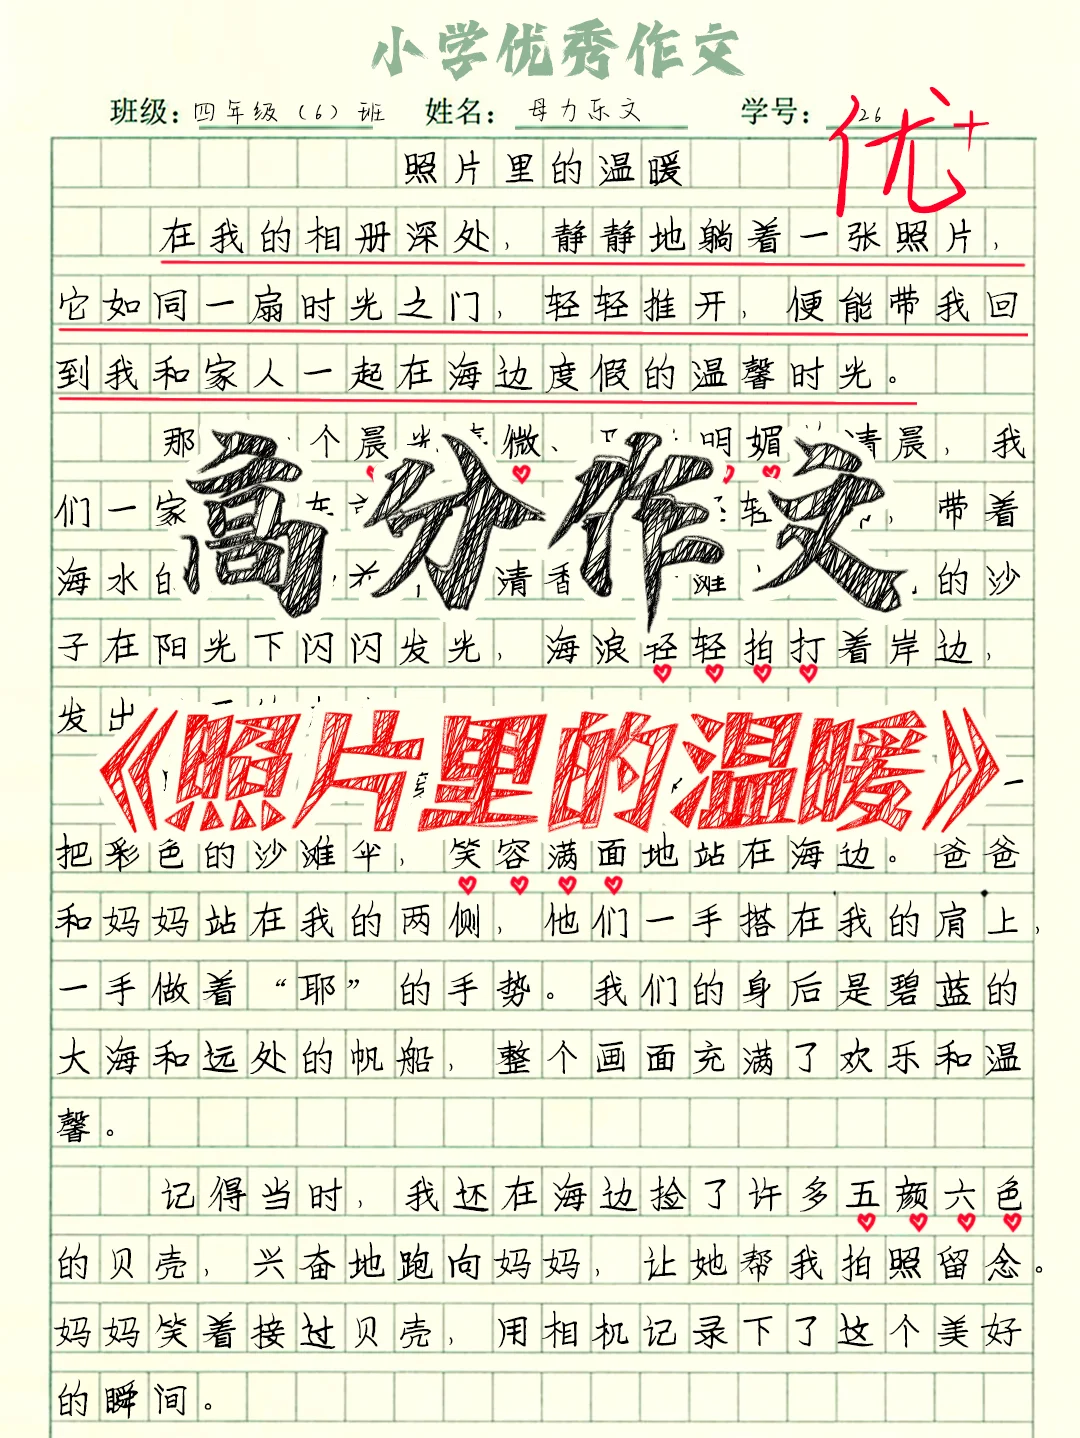 小学优秀作文
班级：四年级（6）班 姓名：母力乐文 学号：26
优+
照片里的温暖
在我的相册深处，静静地躺着一张照片，
它如同一扇时光之门，轻轻推开，便能带我回
到我和家人一起在海边度假的温馨时光。
那 个晨光 微、 明媚 清晨，我
们一家 轻 ，带着
海水的 清香 滩 的沙
子在阳光下闪闪发光，海浪轻轻拍打着岸边，
发出
高分作文
《照片里的温暖》
一
把彩色的沙滩伞，笑容满面地站在海边。爸爸
和妈妈站在我的两侧，他们一手搭在我的肩上，
一手做着“耶”的手势。我们的身后是碧蓝的
大海和远处的帆船，整个画面充满了欢乐和温
馨。
记得当时，我还在海边捡了许多五颜六色
的贝壳，兴奋地跑向妈妈，让她帮我拍照留念。
妈妈笑着接过贝壳，用相机记录下了这个美好
的瞬间。